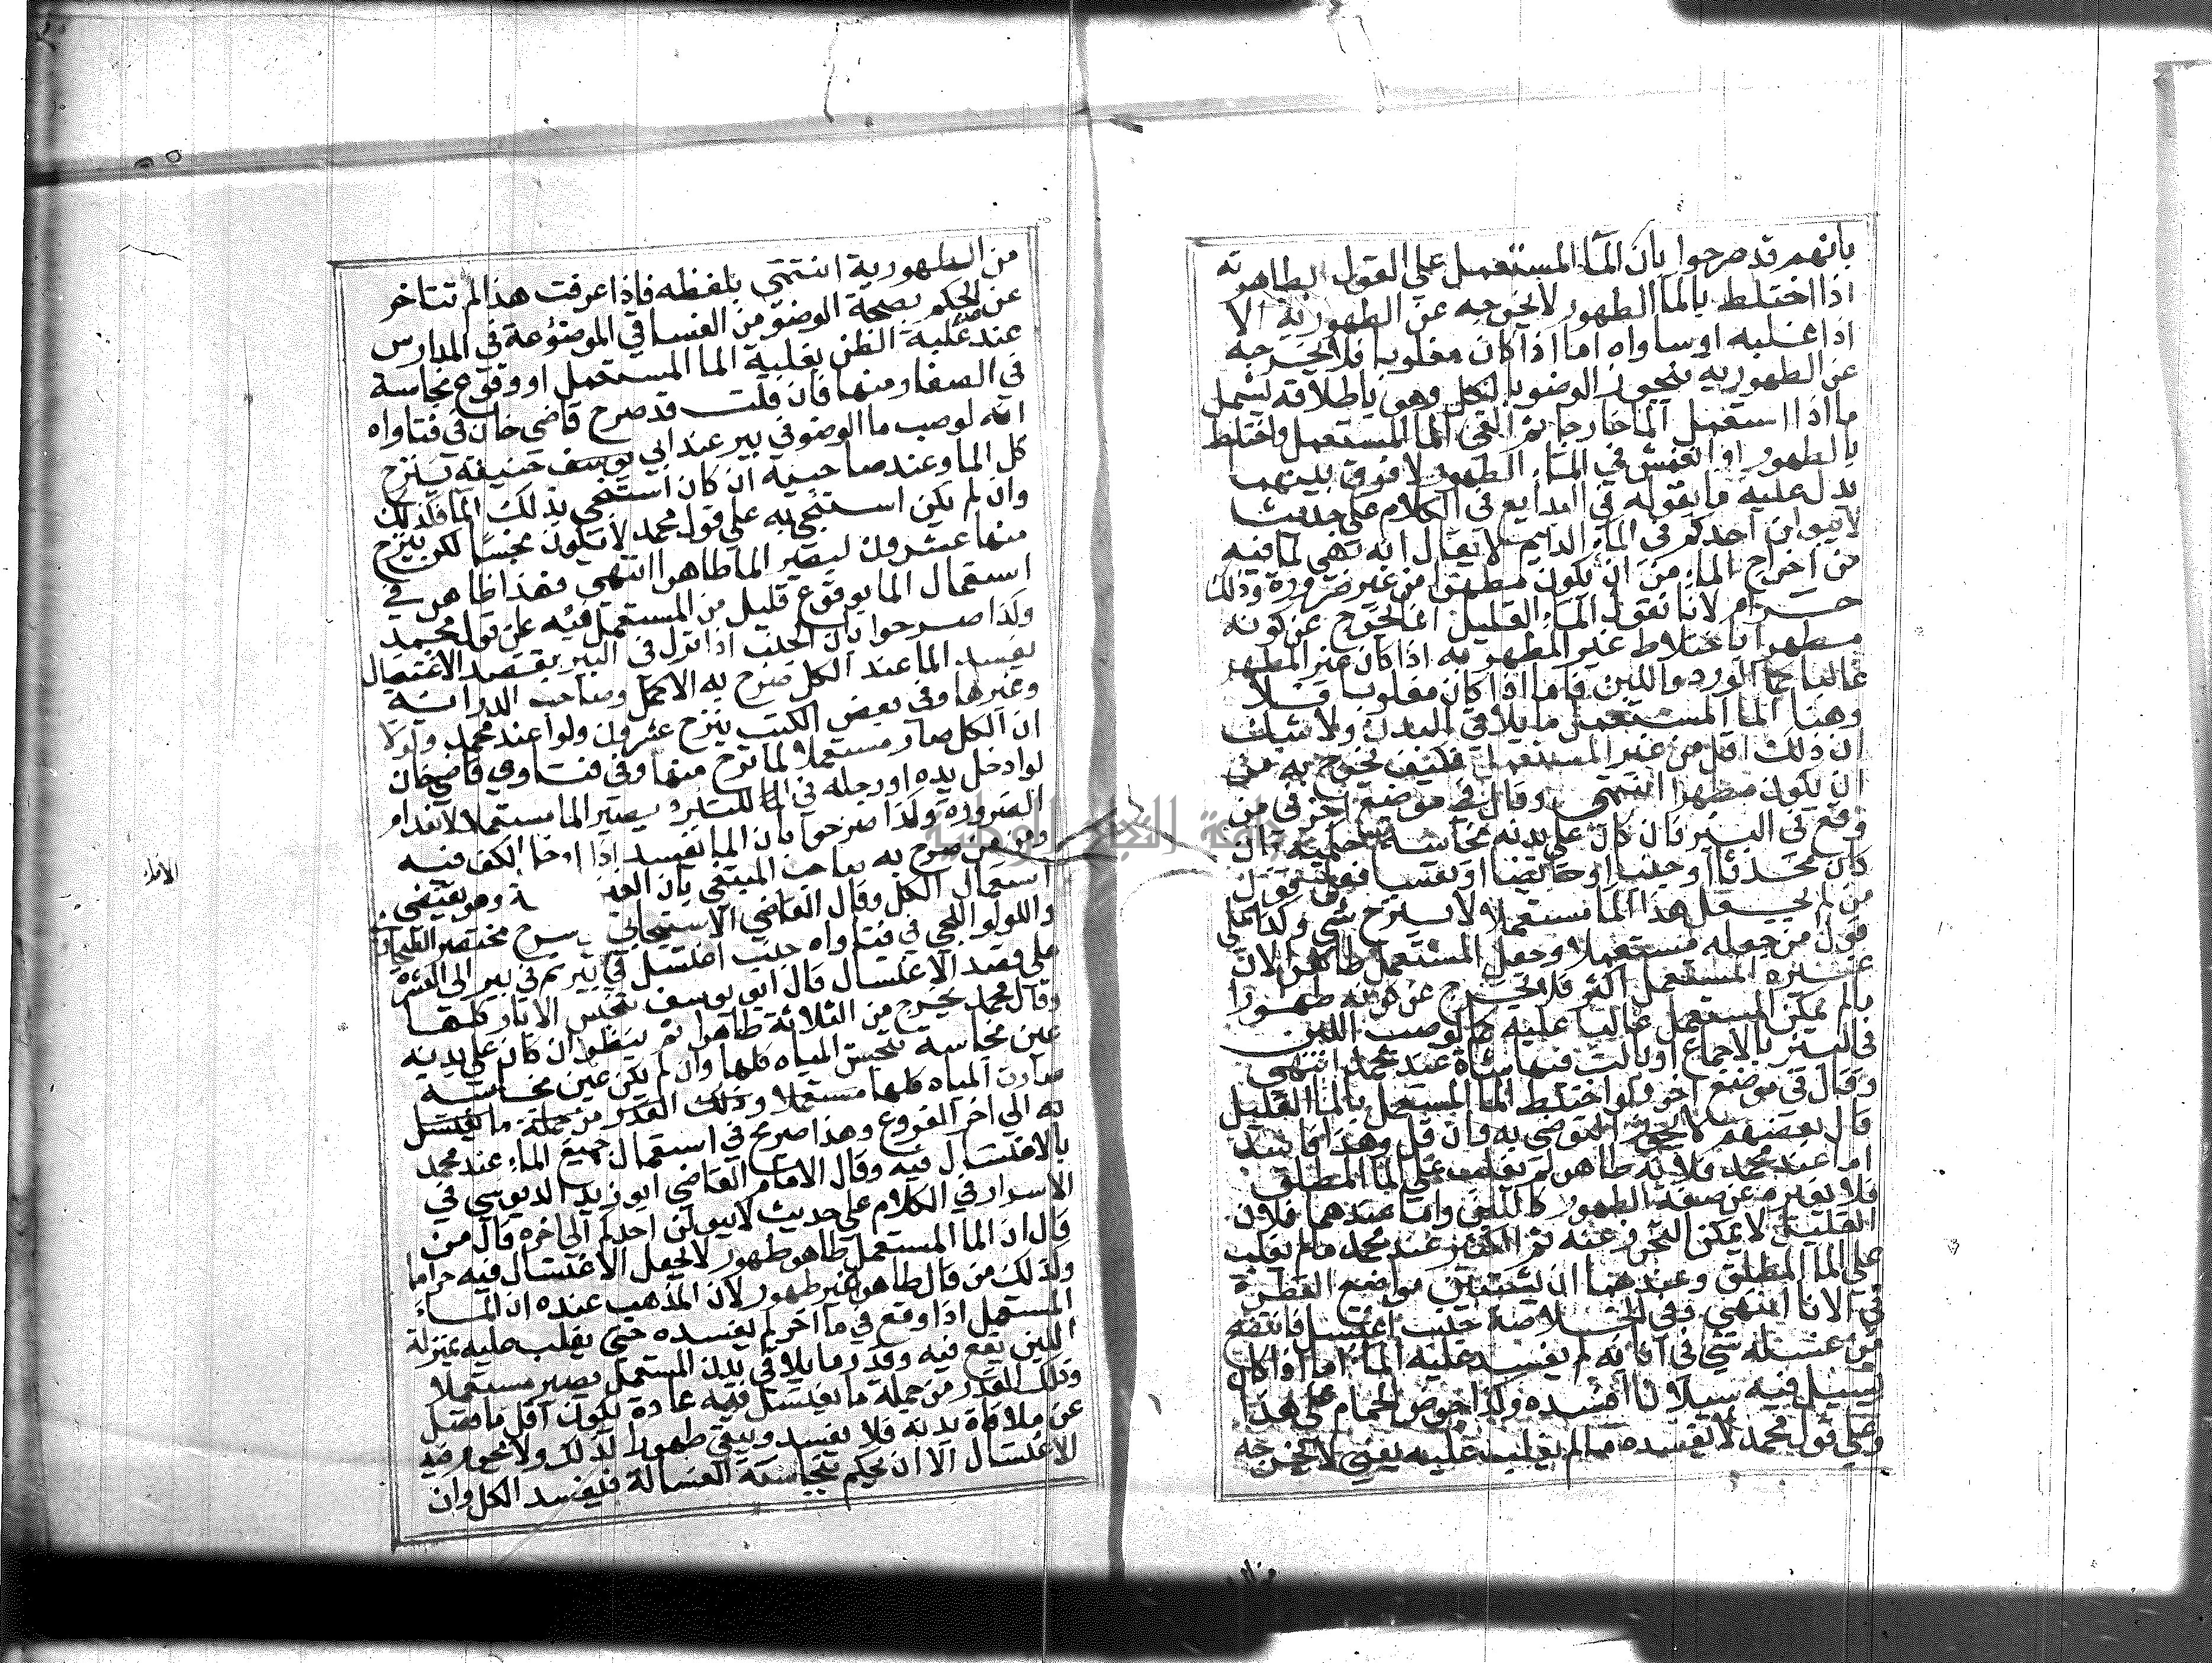 بانهم قد صرحوا بان الما المستعمل علي القول بطاهرته
اذا اختلط بالما الطهور لا يخرجه عن الطهورية الا
اذا غلبه او ساواه اما اذا كان مغلوبا فلا يخرجه
عن الطهوريه فيجوز الوضو بالكل وهو باطلاقه يشمل
ما اذا استعمل الما خارجا ثم القي الما المستعمل واختلط
بالطهور او انغمس في الماء الطهور لا فرق بينهما
يدل عليه ما يقوله في البدايع في الكلام علي حديث
لا يبولن احدكم في الماء الدايم لا يقال انه نهي لما فيه
من اخراج الماء من ان يكون مطهرا من غير ضرورة وذلك
حرام لانا نقول الماء القليل انما يخرج عن كونه
مطهرا باختلاط غير المطهر به اذا كان غير المطهر
غالبا كما الورد واللبن فاما اذا كان مغلوبا فلا
وهنا الما المستعمل ما يلاقي البدن ولا شك
ان ذلك اقل من غير المستعمل فكيف يخرج به من
ان يكون مطهرا انتهي وقال في موضع اخر في من
وقع في البير فان كان علي بدنه نجاسة حكمية بان
كان محدثا او جنبا او حايضا او نفسا فعلي قول
من لم يجعل هذا الما مستعملا لا ينزح شي وكذا علي
قول من جعله مستعملا وجعل المستعمل طاهرا لان
غيره المستعمل اكثر فلا يخرج عن كونه طهورا
ما لم يكن المستعمل غالبا عليه كما لو صب اللبن
في البير بالاجماع او بالت فيها شاة عند محمد انتهي
وقال في موضع اخر ولو اختلط الما المستعمل بالما القليل
قال بعضهم لا يجوز التوضي به وان قل وهذا فاسد
اما عند محمد فلانه طاهر لم يغلب علي الما المطلق
فلا يغيره عن صفة الطهور كاللبن واما عندهما فلان
القليل لا يمكن التحرز عنه ثم الكثير عند محمد ما يغلب
علي الما المطلق وعندهما ان يستبين مواضع القطرة
في الانا انتهي وفي الخلاصة جنب اغتسل فانتضح
من غسله شي في انايه لم يفسد عليه الماء اما اذا كان
يسيل فيه سيلانا افسده وكذا حوض الحمام علي هذا
وعلي قول محمد لا يفسده ما لم يغلب عليه يعني لا يخرجه
من الطهورية انتهي بلفظه فاذا عرفت هذا لم تتاخر
عن الحكم بصحة الوضو من الفساقي الموضوعة في المدارس
عند غلبة الظن بغلبة الما المستعمل او وقوع نجاسة
في الصغار منها فان قلت قد صرح قاضي خان في فتاواه
انه لو صب ما الوضو في بير عند ابي يوسف حنيفة ينزح
كل الما وعند صاحبيه ان كان استنجي بذلك الما فكذلك
وان لم يكن استنجي به علي قول محمد لا يكون نجسا لكن ينزح
منها عشرون ليصير الما طاهرا انتهي فهذا ظاهر في
استعمال الما بوقوع قليل من المستعمل فيه علي قول محمد
وكذا صرحوا بان الجنب اذا نزل في البير بقصد الاغتسال
يفسد الما عند الكل صرح به الاكمل وصاحب الدراية
وغيرها وفي بعض الكتب ينزح عشرون دلوا عند محمد ولولا
ان الكل صار مستعملا لما نزح منها وفي فتاوي قاضي خان
لو ادخل يده او رجله في الما للتبرد يصير الما مستعملا لانعدام
الضرورة وكذا صرحوا بان الما يفسد اذا ادخل الكف فيه
وممن صرح به صاحب المبتغي بان ... وهو يقتضي
استعمال الكل وقال القاضي الاسبيجابي ... شرح مختصر الطحاوي
والولوالجي في فتاواه جنب اغتسل في بير ثم في بير الي العشرة
علي قصد الاغتسال قال ابو يوسف تنجس الابار كلها
وقال محمد يخرج من الثلاثة طاهرا ثم ينظر ان كان علي بدنه
عين نجاسة تنجس المياه كلها وان لم يكن عين نجاسة
صارت المياه كلها مستعملا وذلك القدر من جملة ما يغتسل
به الي اخر الفروع وهذا صريح في استعمال جميع الماء عند محمد
بالاغتسال فيه وقال الامام القاضي ابو زيد الدبوسي في
الاسرار في الكلام علي حديث لا يبولن احدكم الي اخره قال من
قال ان الما المستعمل طاهر طهور لا يجعل الاغتسال فيه حراما
وكذلك من قال طاهر غير طهور لان المذهب عنده ان الماء
المستعمل اذا وقع في ما اخر لم يفسده حتي يغلب عليه بمنزلة
اللبن يقع فيه وقدر ما يلاقي بدن المستعمل يصير مستعملا
وذلك القدر من جملة ما يغتسل فيه عادة يكون اقل ما فضل
عن ملاقاة بدنه فلا يفسد ويبقي طهورا لذلك ولا يحرم فيه
الاغتسال الا ان يحكم بنجاسة الغسالة فيفسد الكل وان